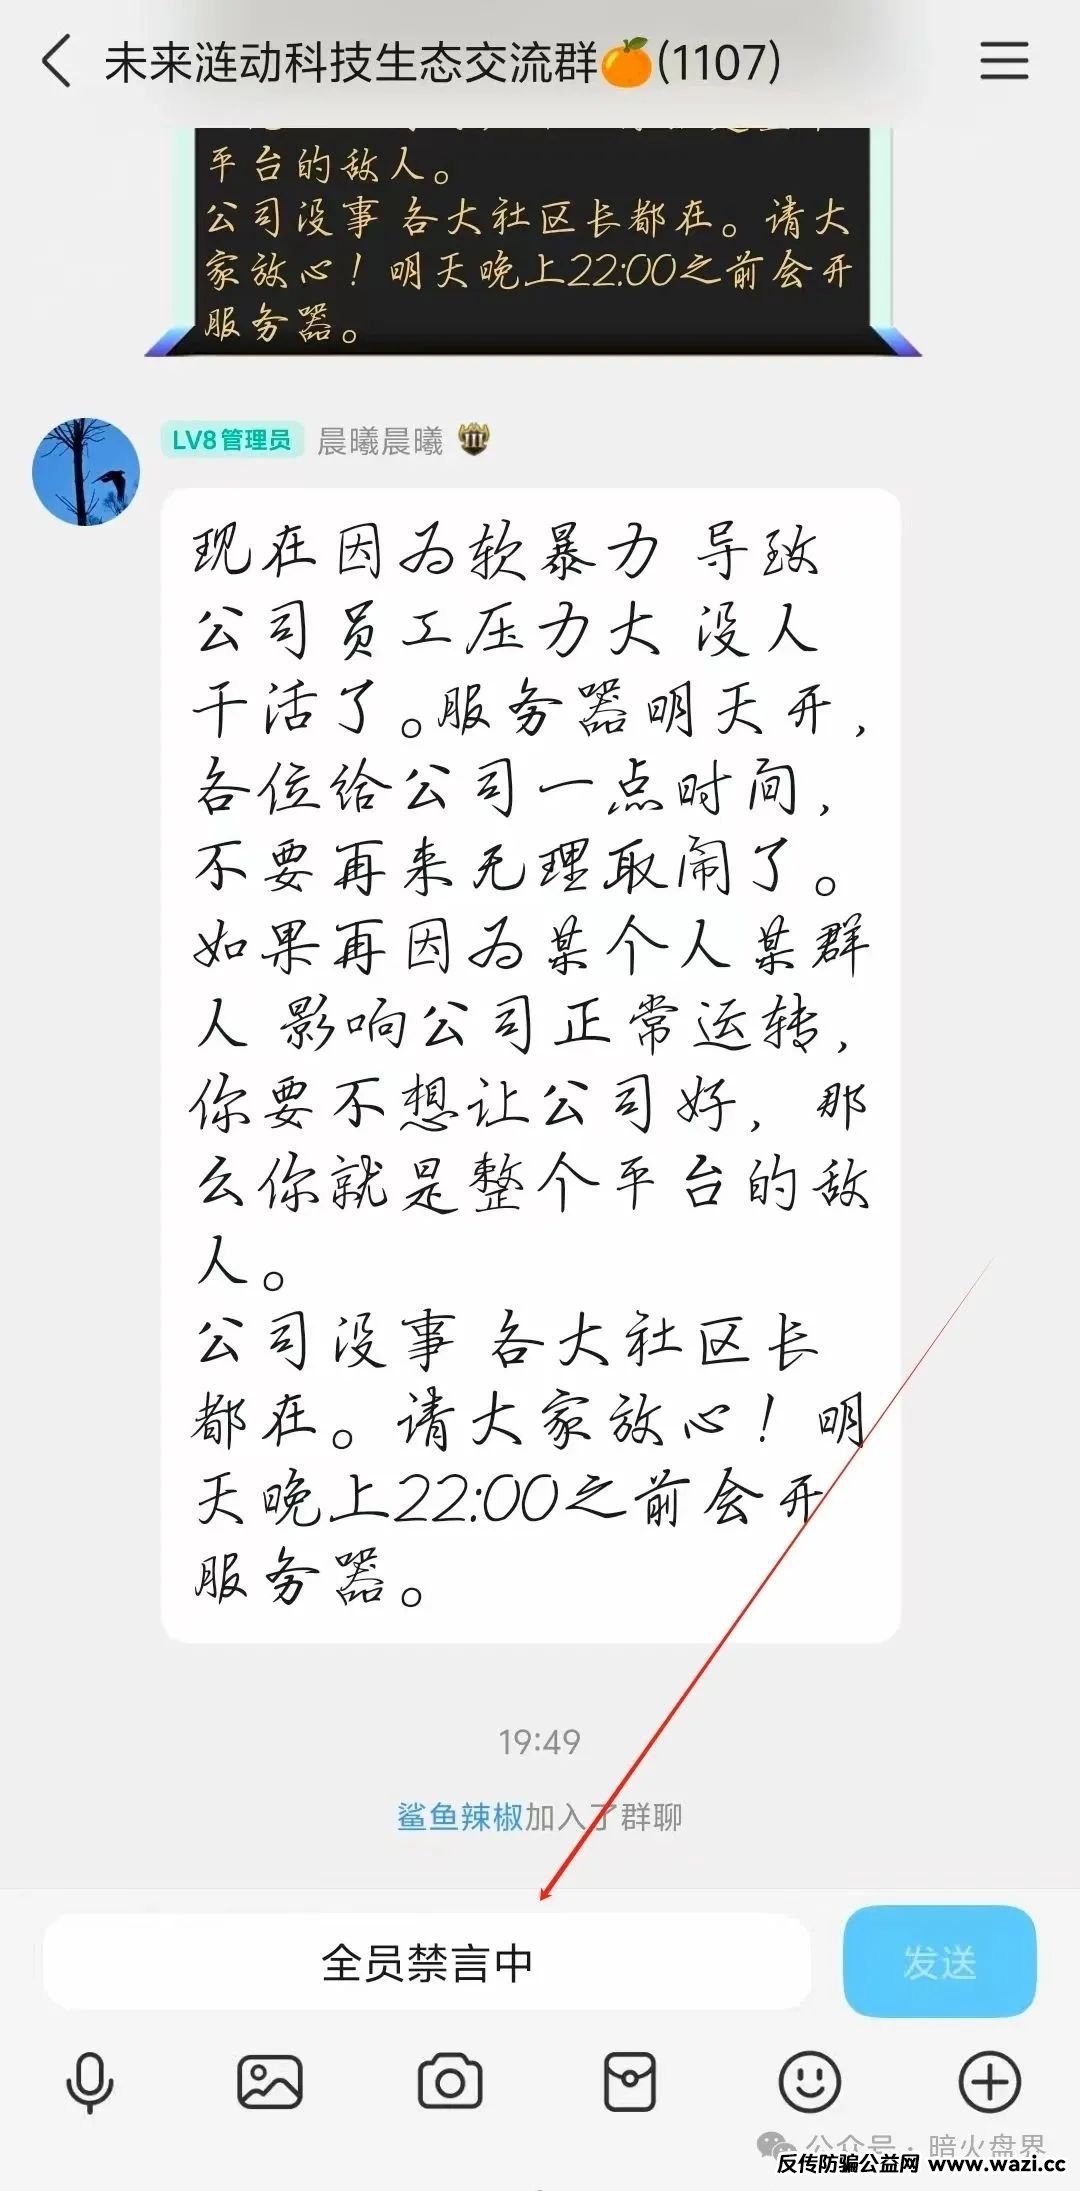 未来涟动科技生态交流群🍊(1107)
平台的敌人。
公司没事 各大社区长都在。请大
家放心！明天晚上22:00之前会开
服务器。
LV8管理员 晨曦晨曦
现在因为软暴力 导致
公司员工压力大 没人
干活了。服务器明天开，
各位给公司一点时间，
不要再来无理取闹了。
如果再因为某个人某群
人 影响公司正常运转，
你要不想让公司好，那
么你就是整个平台的敌
人。
公司没事 各大社区长
都在。请大家放心！明
天晚上22:00之前会开
服务器。
19:49
鲨鱼辣椒加入了群聊
全员禁言中
发送
公众号·暗火盘界
反传防骗公益网 www.wazi.cc